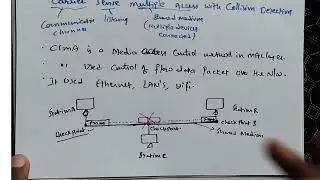 Carrier Sense Multiple Access with Collision Detection
Communication listening Shared medium
channel (multiple devices
connected)
CSMA is a Media Access Control method in MAC layer.
" Used Control of flow data Packet over the N/W.
It Used Ethernet, LAN's, Wifi.
Station A Station B
Frame Frame
Checkpoint Checkpoint Checkpoint B
Shared Medium
Station C